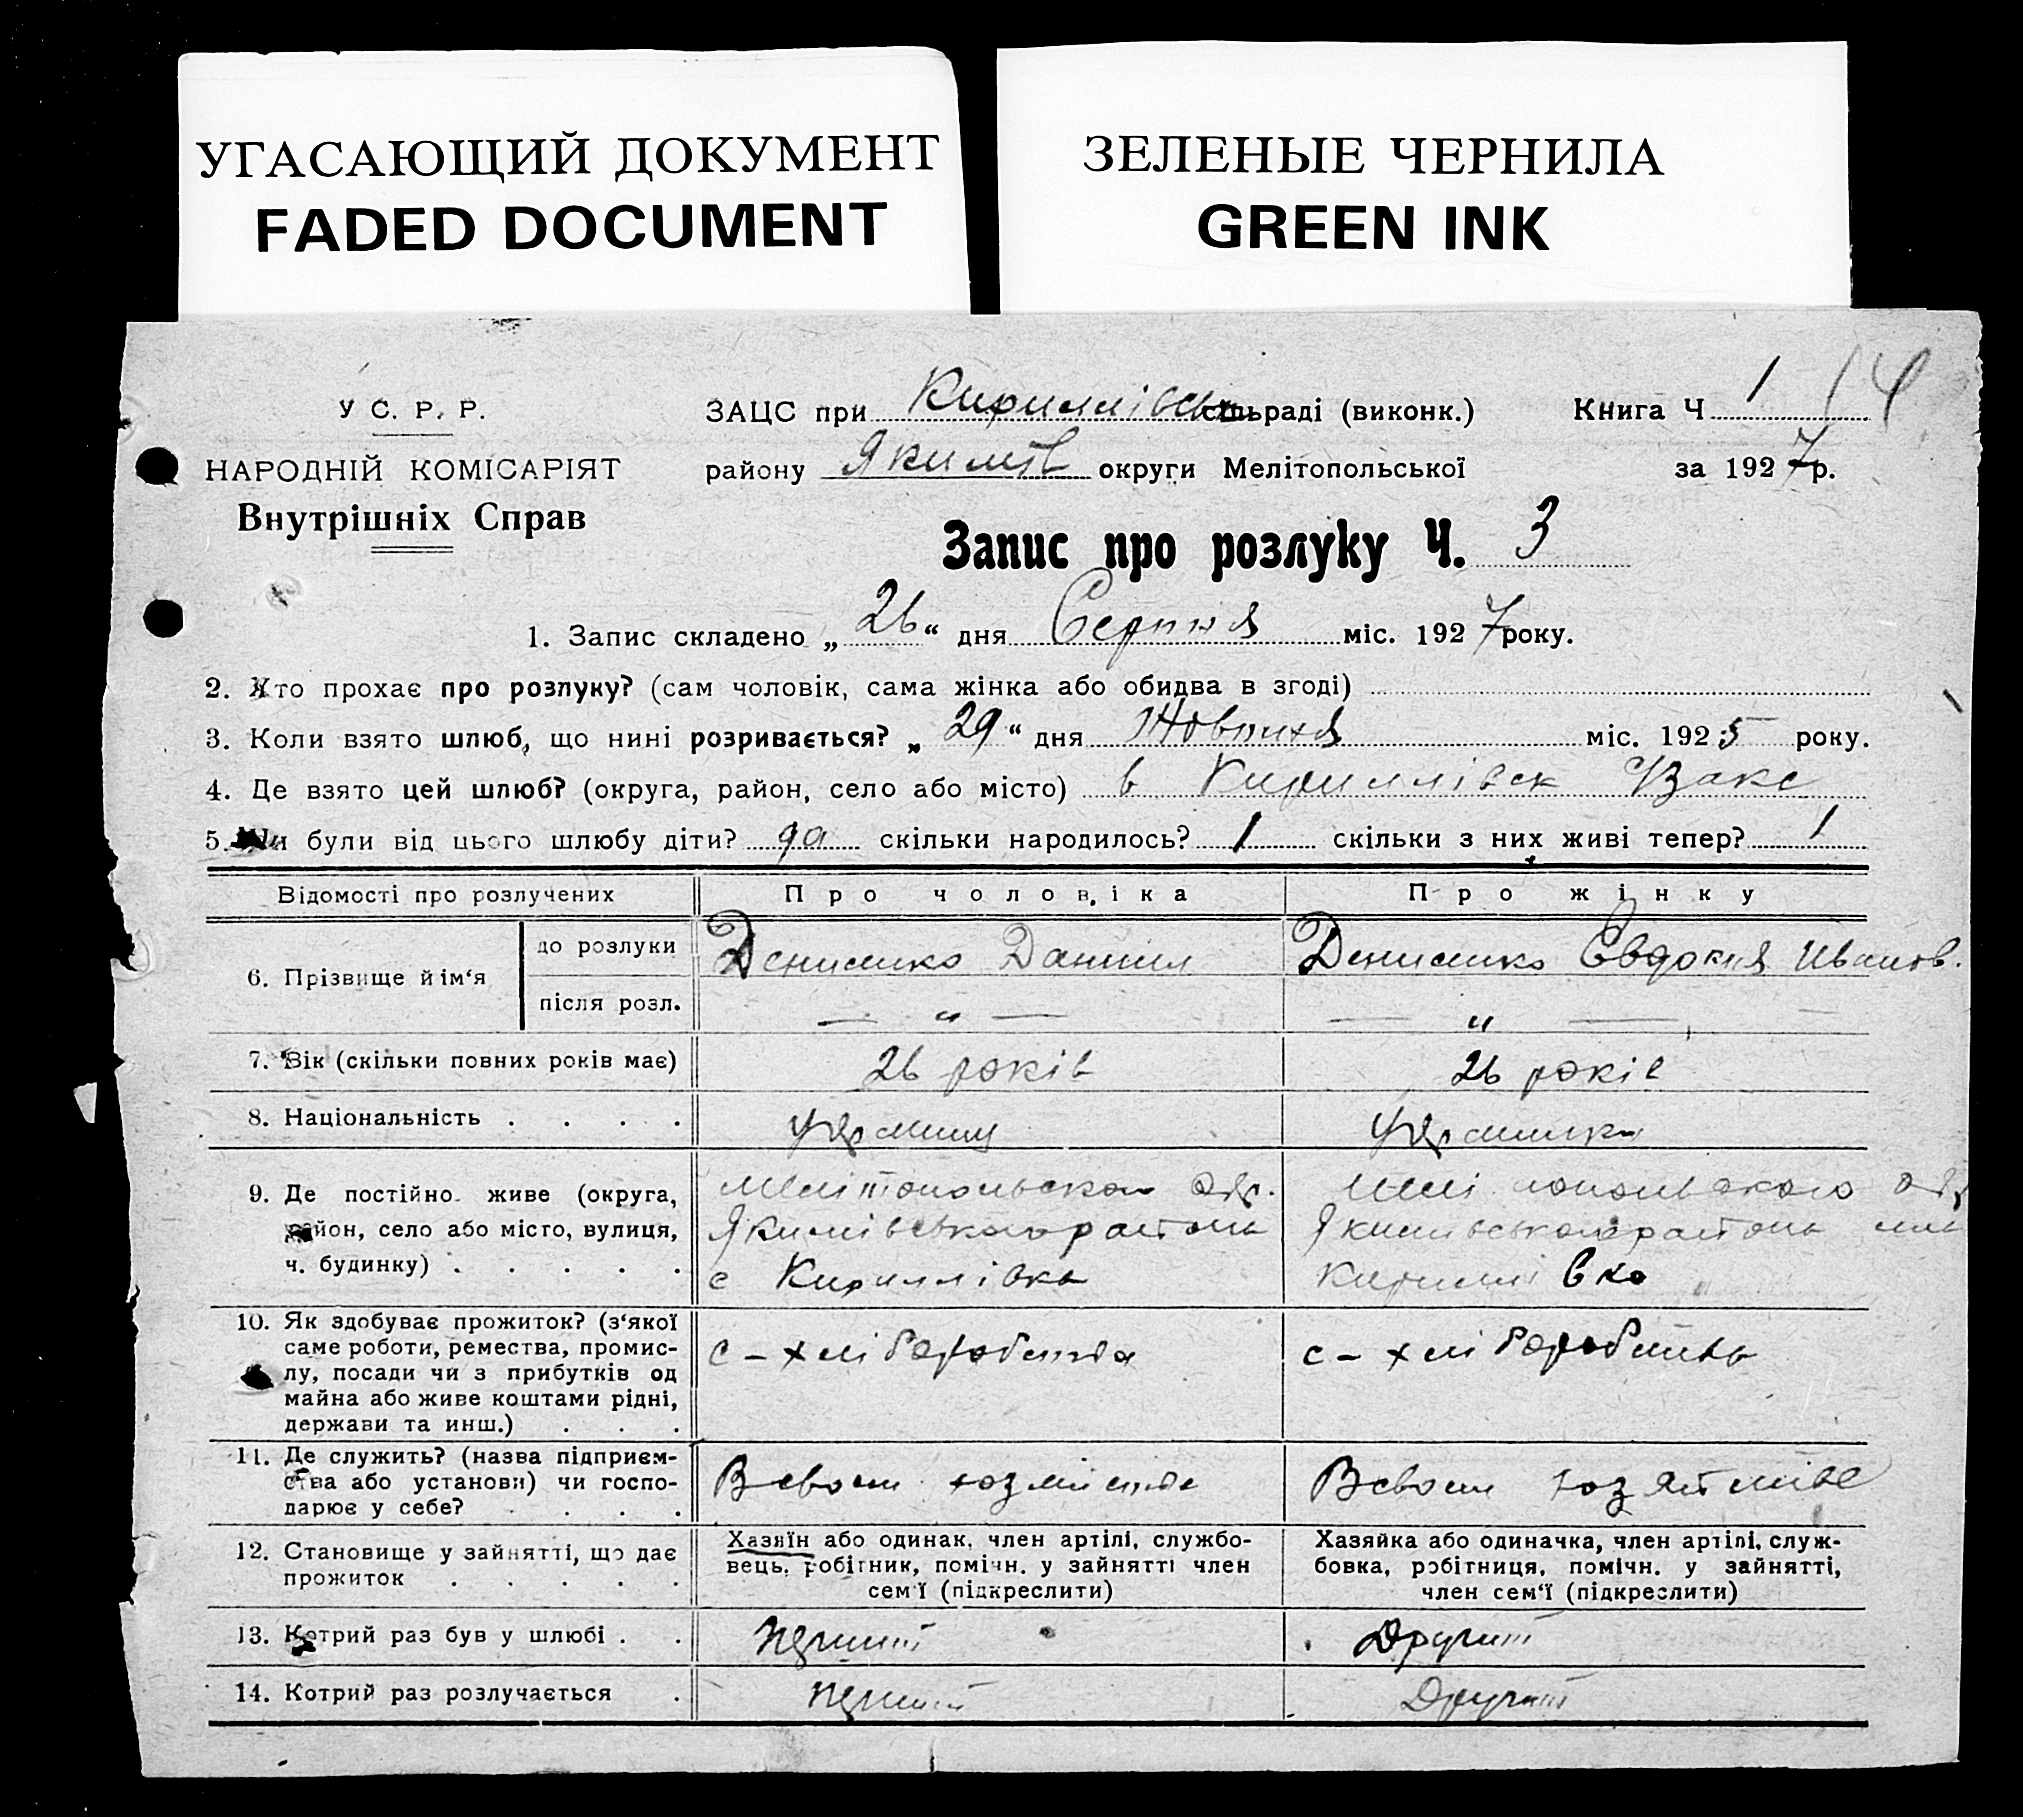 УГАСАЮЩИЙ ДОКУМЕНТ
FADED DOCUMENT
ЗЕЛЕНЫЕ ЧЕРНИЛА
GREEN INK
У С. Р. Р.
НАРОДНІЙ КОМІСАРІЯТ
Внутрішніх Справ
ЗАЦС при Кириллівськ сільраді (виконк.)
Книга Ч 1 14
району Якимів округи Мелітопольської
за 1927 р.
Запис про розлуку Ч. 3
1. Запис складено „26“ дня Серпня міс. 1927 року.
2. Хто прохає про розлуку? (сам чоловік, сама жінка або обидва в згоді)
3. Коли взято шлюб, що нині розривається? „29“ дня Жовтня міс. 1925 року.
4. Де взято цей шлюб? (округа, район, село або місто) в Кириллівск
5. Чи були від цього шлюбу діти? да скільки народилось? 1 скільки з них живі тепер? 1
Відомості про розлучених
Про чоловіка
Про жінку
6. Прізвище й ім‘я
до розлуки
Денисенко Даниил
Денисенко Євдокия Иванов.
після розл.
— „ —
— „ —
7. Вік (скільки повних років має)
26 років
26 років
8. Національність . . . .
9. Де постійно живе (округа,
район, село або місто, вулиця,
ч. будинку) . . . . .
Мелітопольского окр.
Якимівського району
с Кириллівка
Мелітопольского окр
Якимівського району
Кириллівка
10. Як здобуває прожиток? (з‘якої
саме роботи, ремества, промис-
лу, посади чи з прибутків од
майна або живе коштами рідні,
держави та инш.) . . .
с-хліборобство
с-хліборобство
11. Де служить? (назва підприєм-
ства або установи) чи госпо-
дарює у себе? . . . .
В свом
В свом
12. Становище у зайнятті, що дає
прожиток . . . . .
Хазяїн або одинак, член артілі, службо-
вець, робітник, помічн. у зайнятті член
сем‘ї (підкреслити)
Хазяйка або одиначка, член артілі, служ-
бовка, робітниця, помічн. у зайнятті,
член сем‘ї (підкреслити)
13. Котрий раз був у шлюбі . .
перший
Другий
14. Котрий раз розлучається .
перший
Другий